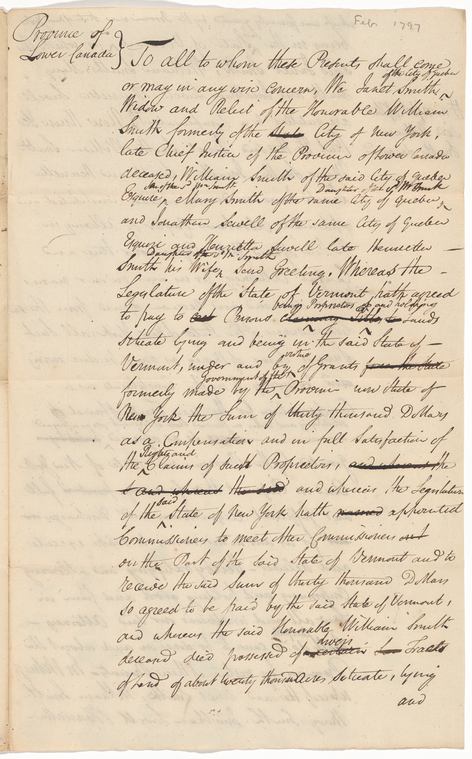 Feb 1797
Province of
Lower Canada }
To all to whom these Presents shall come
or may in any wise concern, We Janet Smith of the City of Quebec
Widow and Relict of the Honorable William
Smith formerly of the State City of New York,
late Chief Justice of the Province of Lower Canada
deceased, William Smith of the said City of Quebec
Esquire, Son of the sd Wm Smith, Mary Smith of the same City of Quebec, Daughter of the sd Wm Smith
and Jonathan Sewell of the same City of Quebec
Esquire and Henrietta Sewell late Henrietta
Smith his Wife, Daughter of the sd Wm Smith Send Greeting. Whereas the
Legislature of the State of Vermont hath agreed
to pay to Persons being Proprietors of Lands
situate lying and being in the said State of
Vermont, under and by virtue of Grants from the State
formerly made by the Government of the Province now State of
New York the Sum of thirty thousand Dollars
as a Compensation and in full Satisfaction of
the Rights and Claims of such Proprietors, and whereas the
and whereas the said and whereas the Legislature
of the said State of New York hath named appointed
Commissioners to meet other Commissioners
on the Part of the said State of Vermont and to
receive the said sum of thirty thousand Dollars
so agreed to be paid by the said State of Vermont,
and whereas the said Honorable William Smith
deceased died possessed of certain divers Tracts
of Land of about twenty thousand acres situate, lying
and